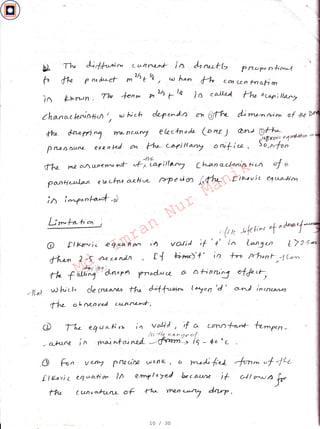 b The diffusion current is directly proportional
to the product m^2/3 t^1/6, when the concentration
is known. The term m^2/3 t^1/6 is called the "capillary
characteristics", which depends on ① the dimension of the
the dropping mercury electrode (DME) and ② the
pressure exerted on the capillary orifice. So, for
the measurement of the capillary characteristics of a
particular electroactive species, the Ilkovic equation
is important.
Limitation:
① Ilkovic equation is valid if 't' is larger
than 2-5 seconds. If 't' is too short, then
the falling drops produce a stirring effect,
which decreases the diffusion layer 'd' and increases
the observed current.
② The equation is valid, if a constant temper-
-ature is maintained. 15 - 40°c.
③ For very precise work, a modified form of the
Ilkovic equation is employed because it allows for
the curvature of the mercury drop.
Md. Imran Nur Manik
10 / 30